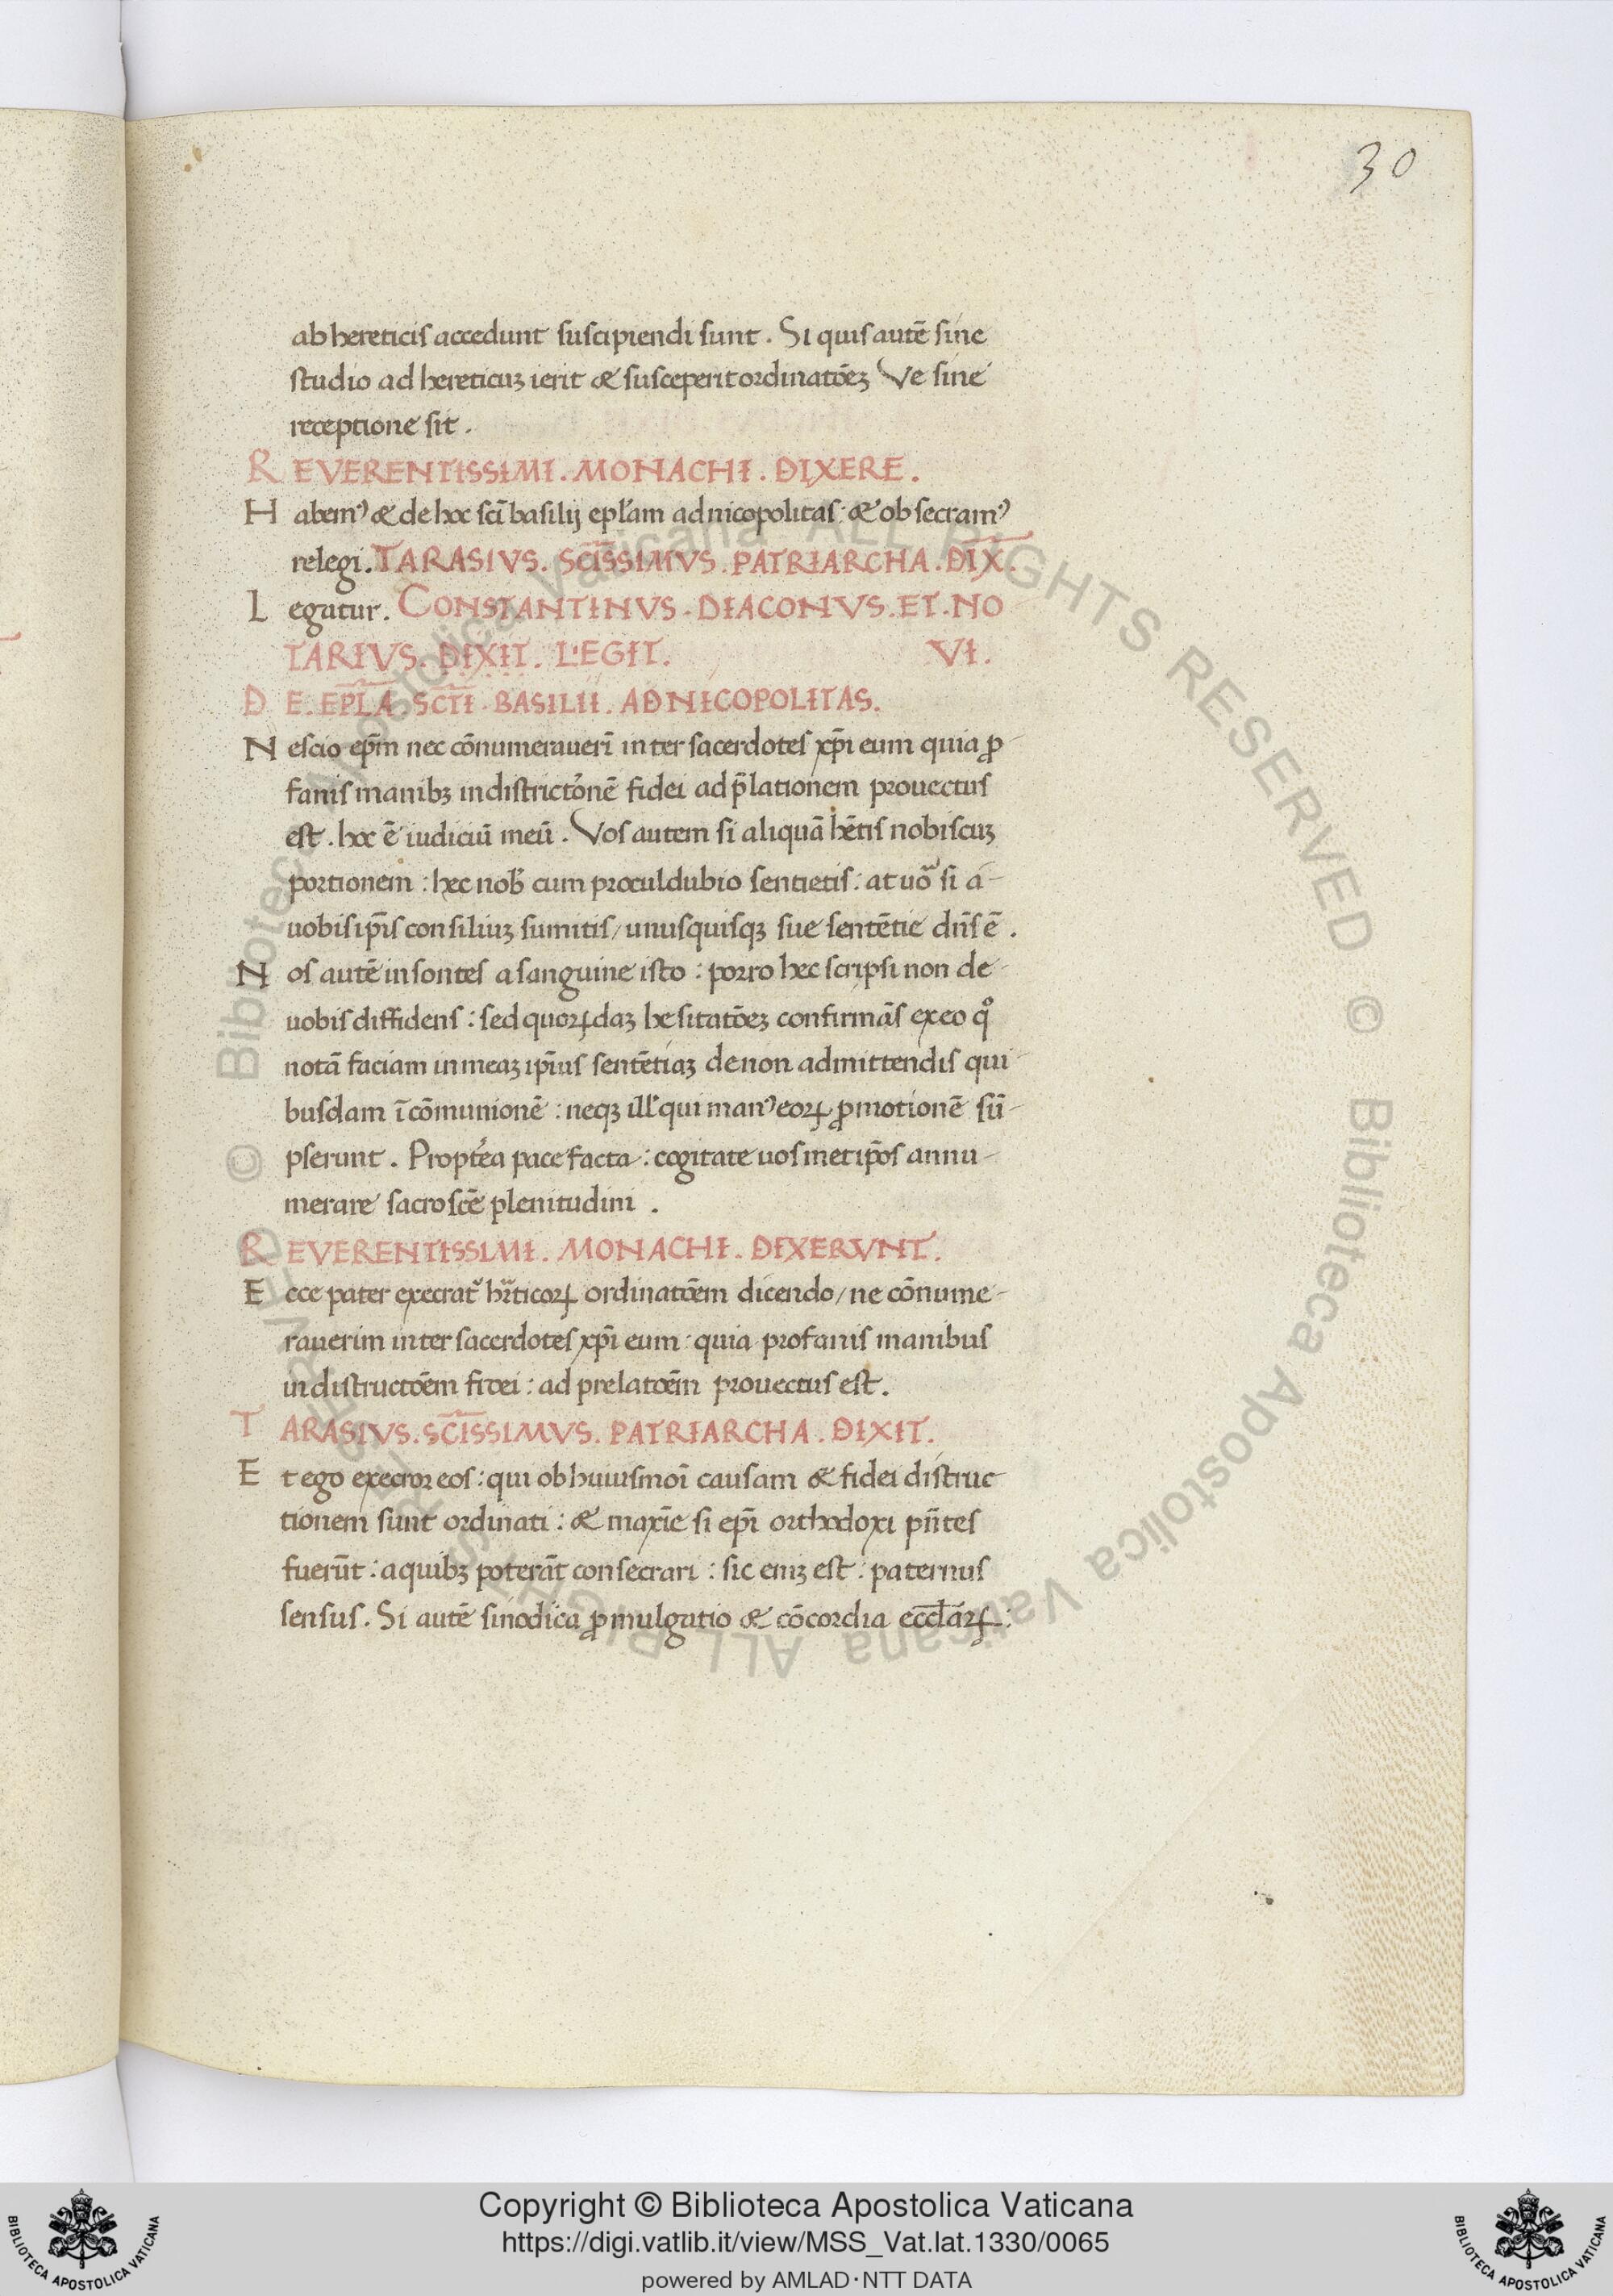 30
ab hereticis accedunt suscipiendi sunt. Si quis autē sine
studio ad hereticuꝫ ierit & susceperit ordinatōeꝫ Ve sine
receptione sit.
REVERENTISSIMI. MONACHI. DIXERE.
Habemꝰ & de hoc scī basilij epl̄am ad nicopolitas: & obsecramꝰ
relegi. TARASIVS. SC̄ISSIMVS. PATRIARCHA. DĪX.
Legatur. CONSTANTINVS. DIACONVS. ET. NO
TARIVS. DIXIT. LEGIT. VI.
DE. EPL̄A SC̄TI. BASILII. AD NICOPOLITAS.
Nescio ep̄m nec cōnumerauerī inter sacerdotes xp̄i eum quia ꝓ-
fanis manibꝫ indistrictōnē fidei ad p̄lationem prouectus
est. hoc ē iudiciū meū. Vos autem si aliquā hētis nobiscuꝫ
portionem: hec nob̄ cum proculdubio sentietis: at uō si a-
uobis ip̄is consiliuꝫ sumitis/ unusquisqꝫ sue sentētie dn̄s ē.
Nos autē insontes a sanguine isto: porro hec scripsi non de-
uobis diffidens: sed quoꝝdaꝫ hesitatōeꝫ confirmās ex eo qͦ
notā faciam in meaꝫ ip̄ius sentētiaꝫ de non admittendis qui-
busdam ī cōmunionē: neqꝫ ill' qui manꝰ eoꝝ ꝓmotionē sū-
pserunt. Propt̓ea pace facta: cogitate uosmetip̄os annu-
merare sacroscē plenitudini.
REVERENTISSIMI. MONACHI. DIXERVNT.
Ecce pater execrat᷑ hr̄ticoꝝ ordinatōem dicendo/ ne cōnume-
rauerim inter sacerdotes xp̄i eum: quia profanis manibus
in distructōem fidei: ad prelatōem prouectus est.
TARASIVS. SC̄ISSIMVS. PATRIARCHA. DIXIT.
Et ego execror eos: qui ob huiusmoī causam & fidei distruc-
tionem sunt ordinati: & maxīe si ep̄i orthodoxi pn̄tes
fuerūt: a quibꝫ poterāt consecrari: sic eniꝫ est: paternus
sensus. Si autē sinodica ꝓmulgatio & cōcordia eccl̄aꝝ:
© Biblioteca Apostolica Vaticana ALL RIGHTS RESERVED © Biblioteca Apostolica Vaticana ALL RIGHTS RESERVED
Copyright © Biblioteca Apostolica Vaticana
https://digi.vatlib.it/view/MSS_Vat.lat.1330/0065
powered by AMLAD·NTT DATA
BIBLIOTECA APOSTOLICA VATICANA
BIBLIOTECA APOSTOLICA VATICANA